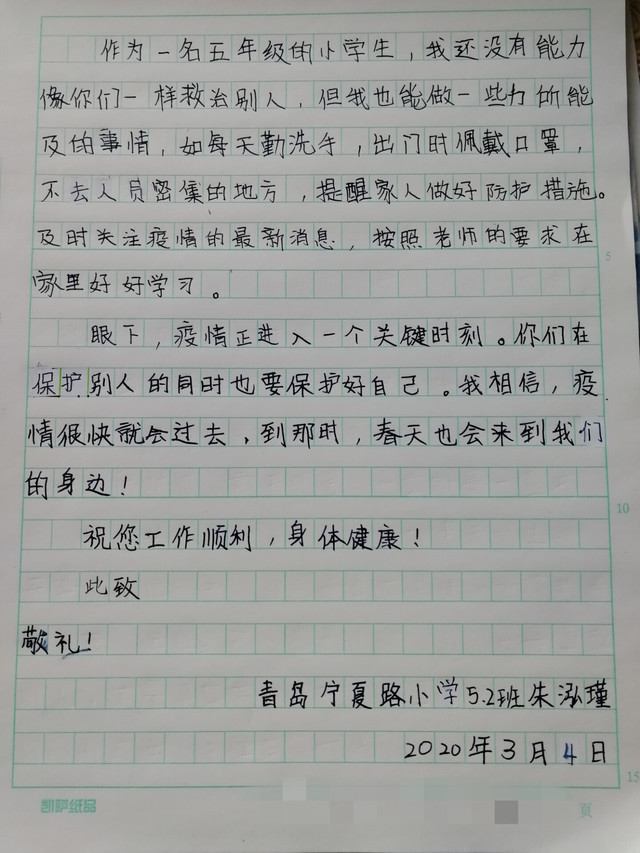 作为一名五年级的小学生，我还没有能力
像你们一样救治别人，但我也能做一些力所能
及的事情，如每天勤洗手，出门时佩戴口罩，
不去人员密集的地方，提醒家人做好防护措施。
及时关注疫情的最新消息，按照老师的要求在
家里好好学习。
眼下，疫情正进入一个关键时刻。你们在
保护别人的同时也要保护好自己。我相信，疫
情很快就会过去，到那时，春天也会来到我们
的身边！
祝您工作顺利，身体健康！
此致
敬礼！
青岛宁夏路小学5.2班朱泓瑾
2020年3月4日
5
10
15
凯萨纸品
頁